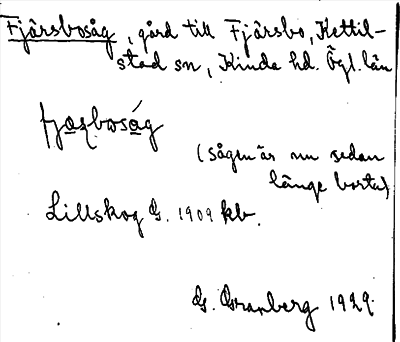 Fjärsbosåg, gård till Fjärsbo, Kettil-
stad sn, Kinda hd. Ögl. län
fjasbosåg
(sågen är nu sedan
länge borta)
Lillskog G. 1909 kb.
G. Granberg 1929.